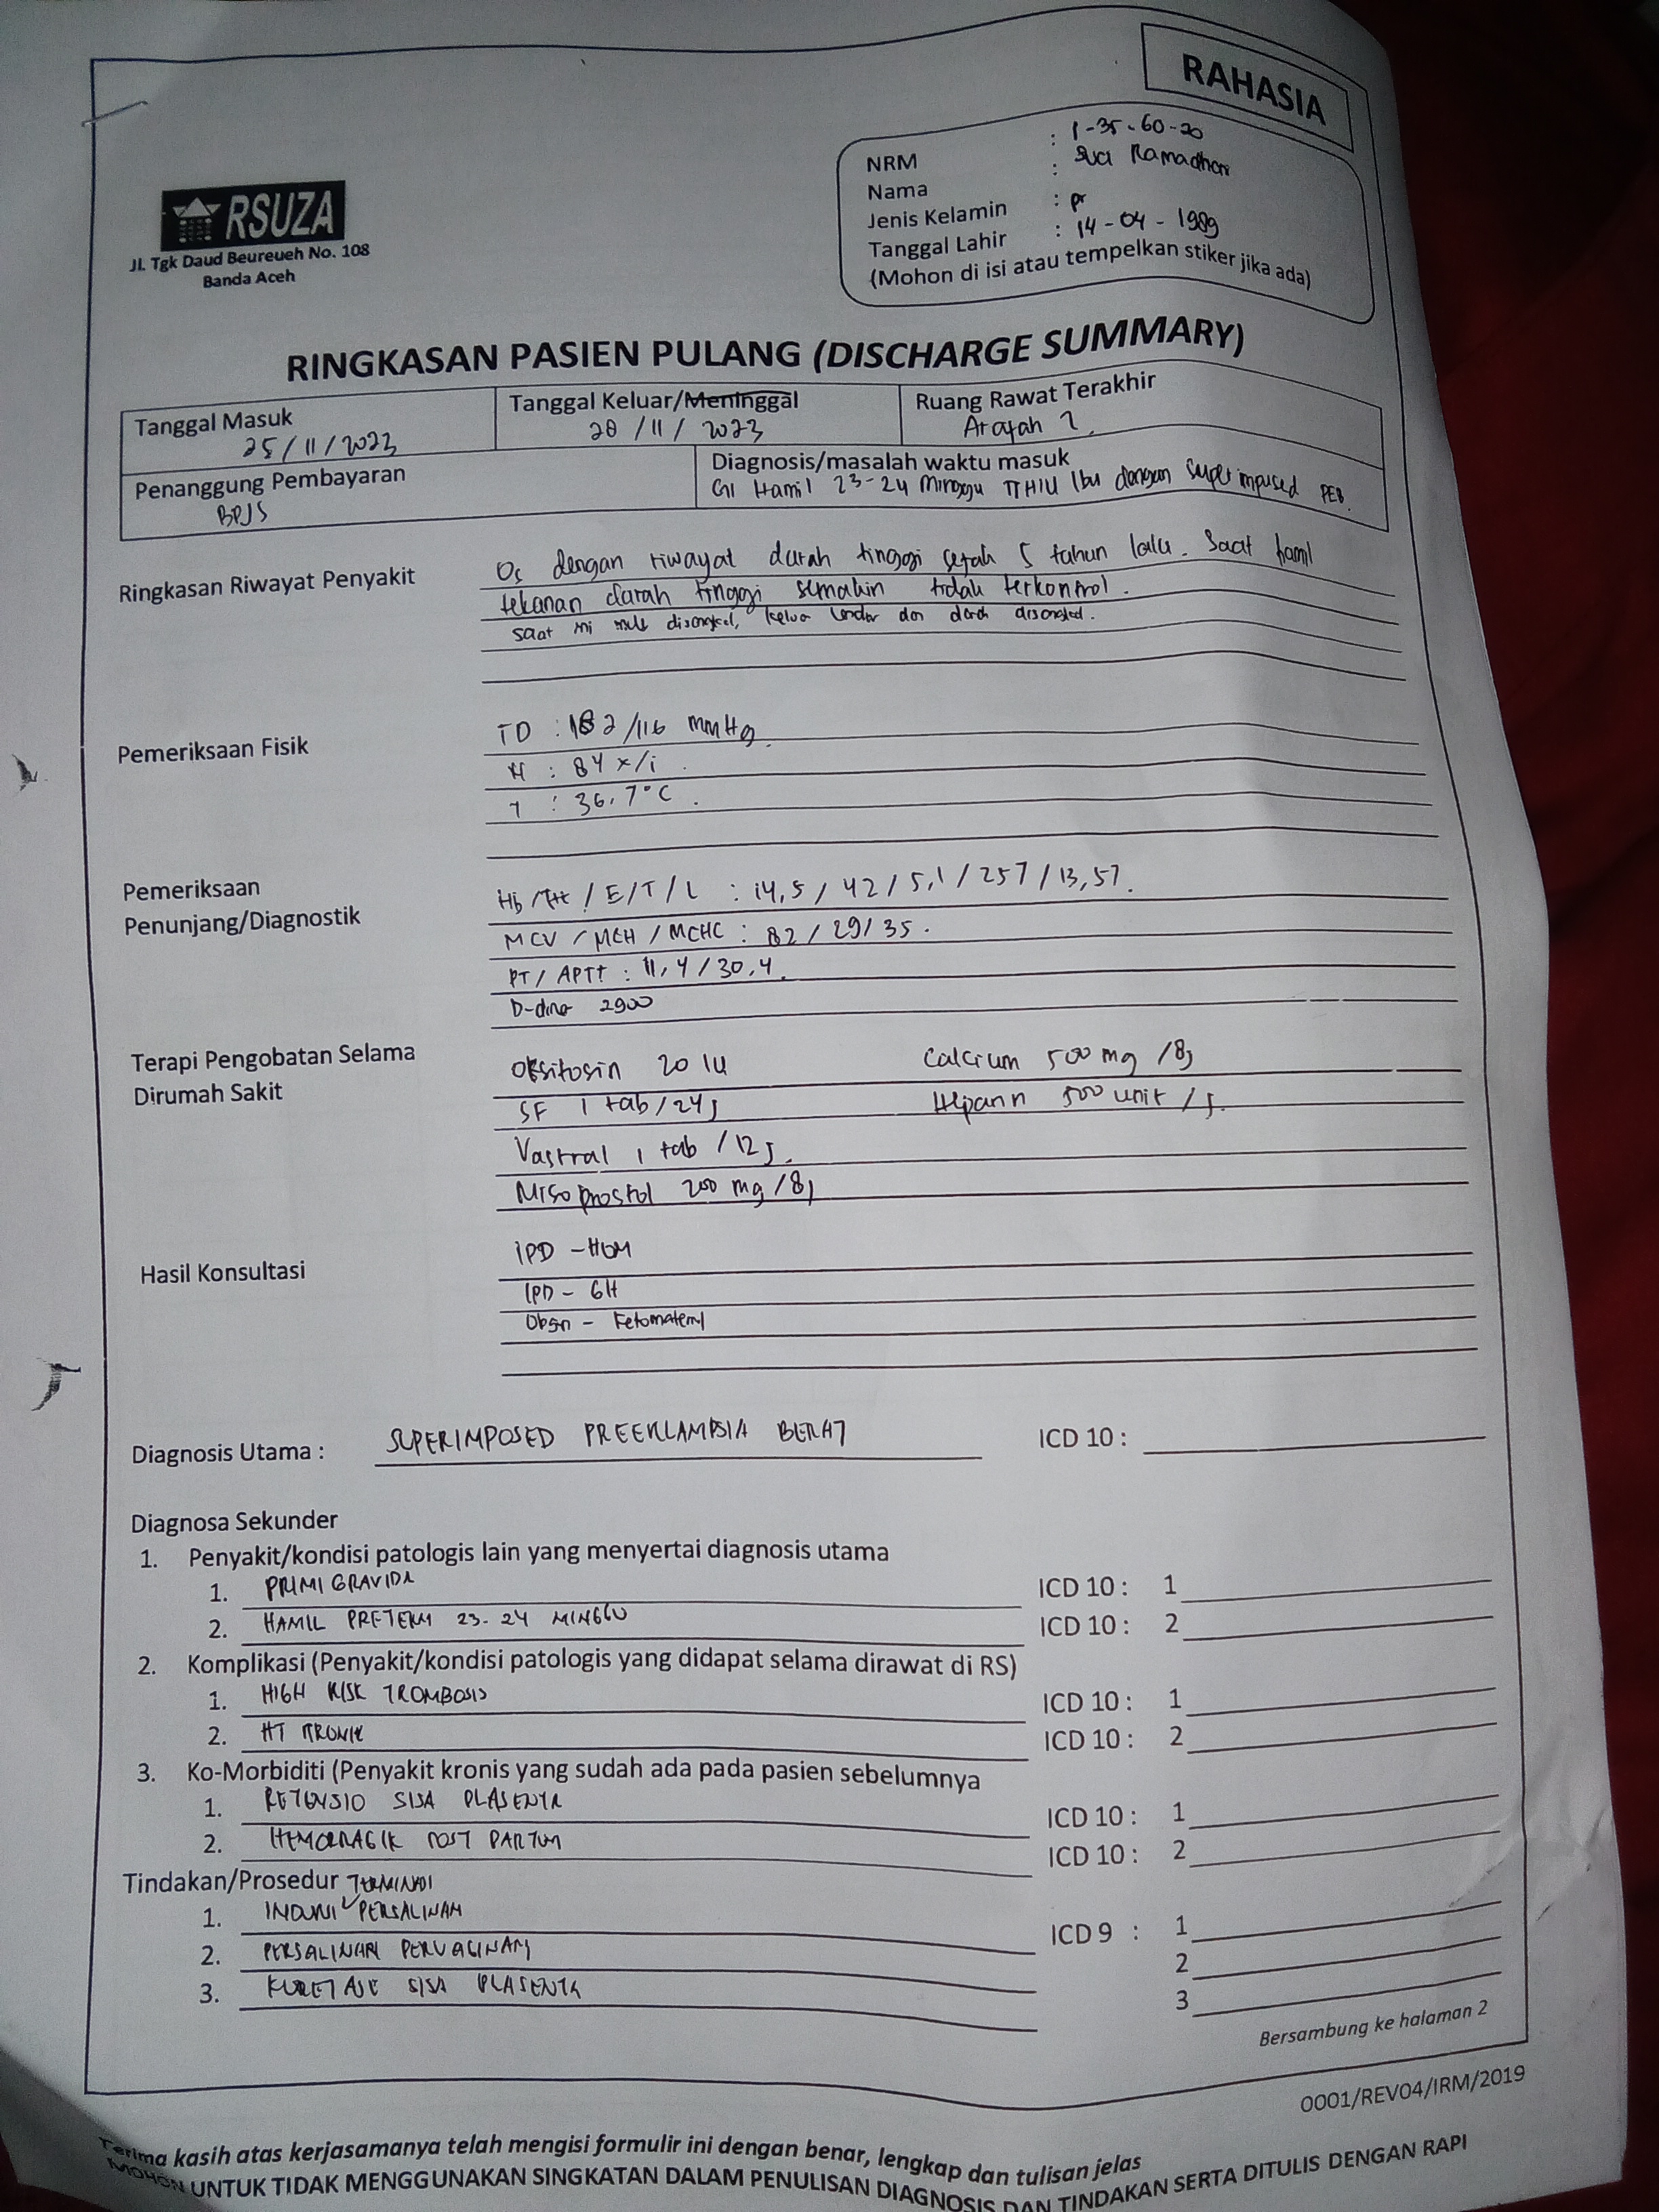 RAHASIA
NRM : 1-35-60-20
Nama : Suci Ramadhani
Jenis Kelamin : pr
Tanggal Lahir : 14-04-1989
(Mohon di isi atau tempelkan stiker jika ada)
RSUZA
Jl. Tgk Daud Beureueh No. 108
Banda Aceh
RINGKASAN PASIEN PULANG (DISCHARGE SUMMARY)
Tanggal Masuk
25/11/2023
Tanggal Keluar/Meninggal
28/11/2023
Ruang Rawat Terakhir
Arafah 2
Penanggung Pembayaran
BPJS
Diagnosis/masalah waktu masuk
G1 Hamil 23-24 Minggu JTHIU Ibu dengan superimpused PEB.
Ringkasan Riwayat Penyakit
Os dengan riwayat darah tinggi sejak 5 tahun lalu. Saat hamil
tekanan darah tinggi semakin tidak terkontrol.
saat ini disangkal, keluar lendir dan darah disangkal.
Pemeriksaan Fisik
TD : 182/116 mmHg.
N : 84 x/i.
T : 36,7°C.
Pemeriksaan
Penunjang/Diagnostik
Hb/Ht/E/T/L : 14,5/42/5,1/257/13,57.
MCV/MCH/MCHC : 82/29/35.
PT/APTT : 11,4/30,4.
D-dimer 2900
Terapi Pengobatan Selama
Dirumah Sakit
Oksitosin 20 IU
Calcium 500 mg /8j
SF 1 tab/24j
Heparin 500 unit/j.
Vastral 1 tab /12j.
Misoprostol 200 mg/8j
Hasil Konsultasi
IPD - HOM
IPD - GH
Obgin - Fetomaternal
Diagnosis Utama : SUPERIMPOSED PREEKLAMPSIA BERAT ICD 10 :
Diagnosa Sekunder
1. Penyakit/kondisi patologis lain yang menyertai diagnosis utama
1. PRIMI GRAVIDA ICD 10 : 1
2. HAMIL PRETERM 23-24 MINGGU ICD 10 : 2
2. Komplikasi (Penyakit/kondisi patologis yang didapat selama dirawat di RS)
1. HIGH RISK TROMBOSIS ICD 10 : 1
2. HT KRONIK ICD 10 : 2
3. Ko-Morbiditi (Penyakit kronis yang sudah ada pada pasien sebelumnya
1. RETENSIO SISA PLASENTA ICD 10 : 1
2. HEMORRAGIK POST PARTUM ICD 10 : 2
Tindakan/Prosedur TERMINASI
1. INDUKSI PERSALINAN ICD 9 : 1
2. PERSALINAN PERVAGINAM 2
3. KURETASE SISA PLASENTA 3
Bersambung ke halaman 2
0001/REV04/IRM/2019
Terima kasih atas kerjasamanya telah mengisi formulir ini dengan benar, lengkap dan tulisan jelas
MOHON UNTUK TIDAK MENGGUNAKAN SINGKATAN DALAM PENULISAN DIAGNOSIS DAN TINDAKAN SERTA DITULIS DENGAN RAPI